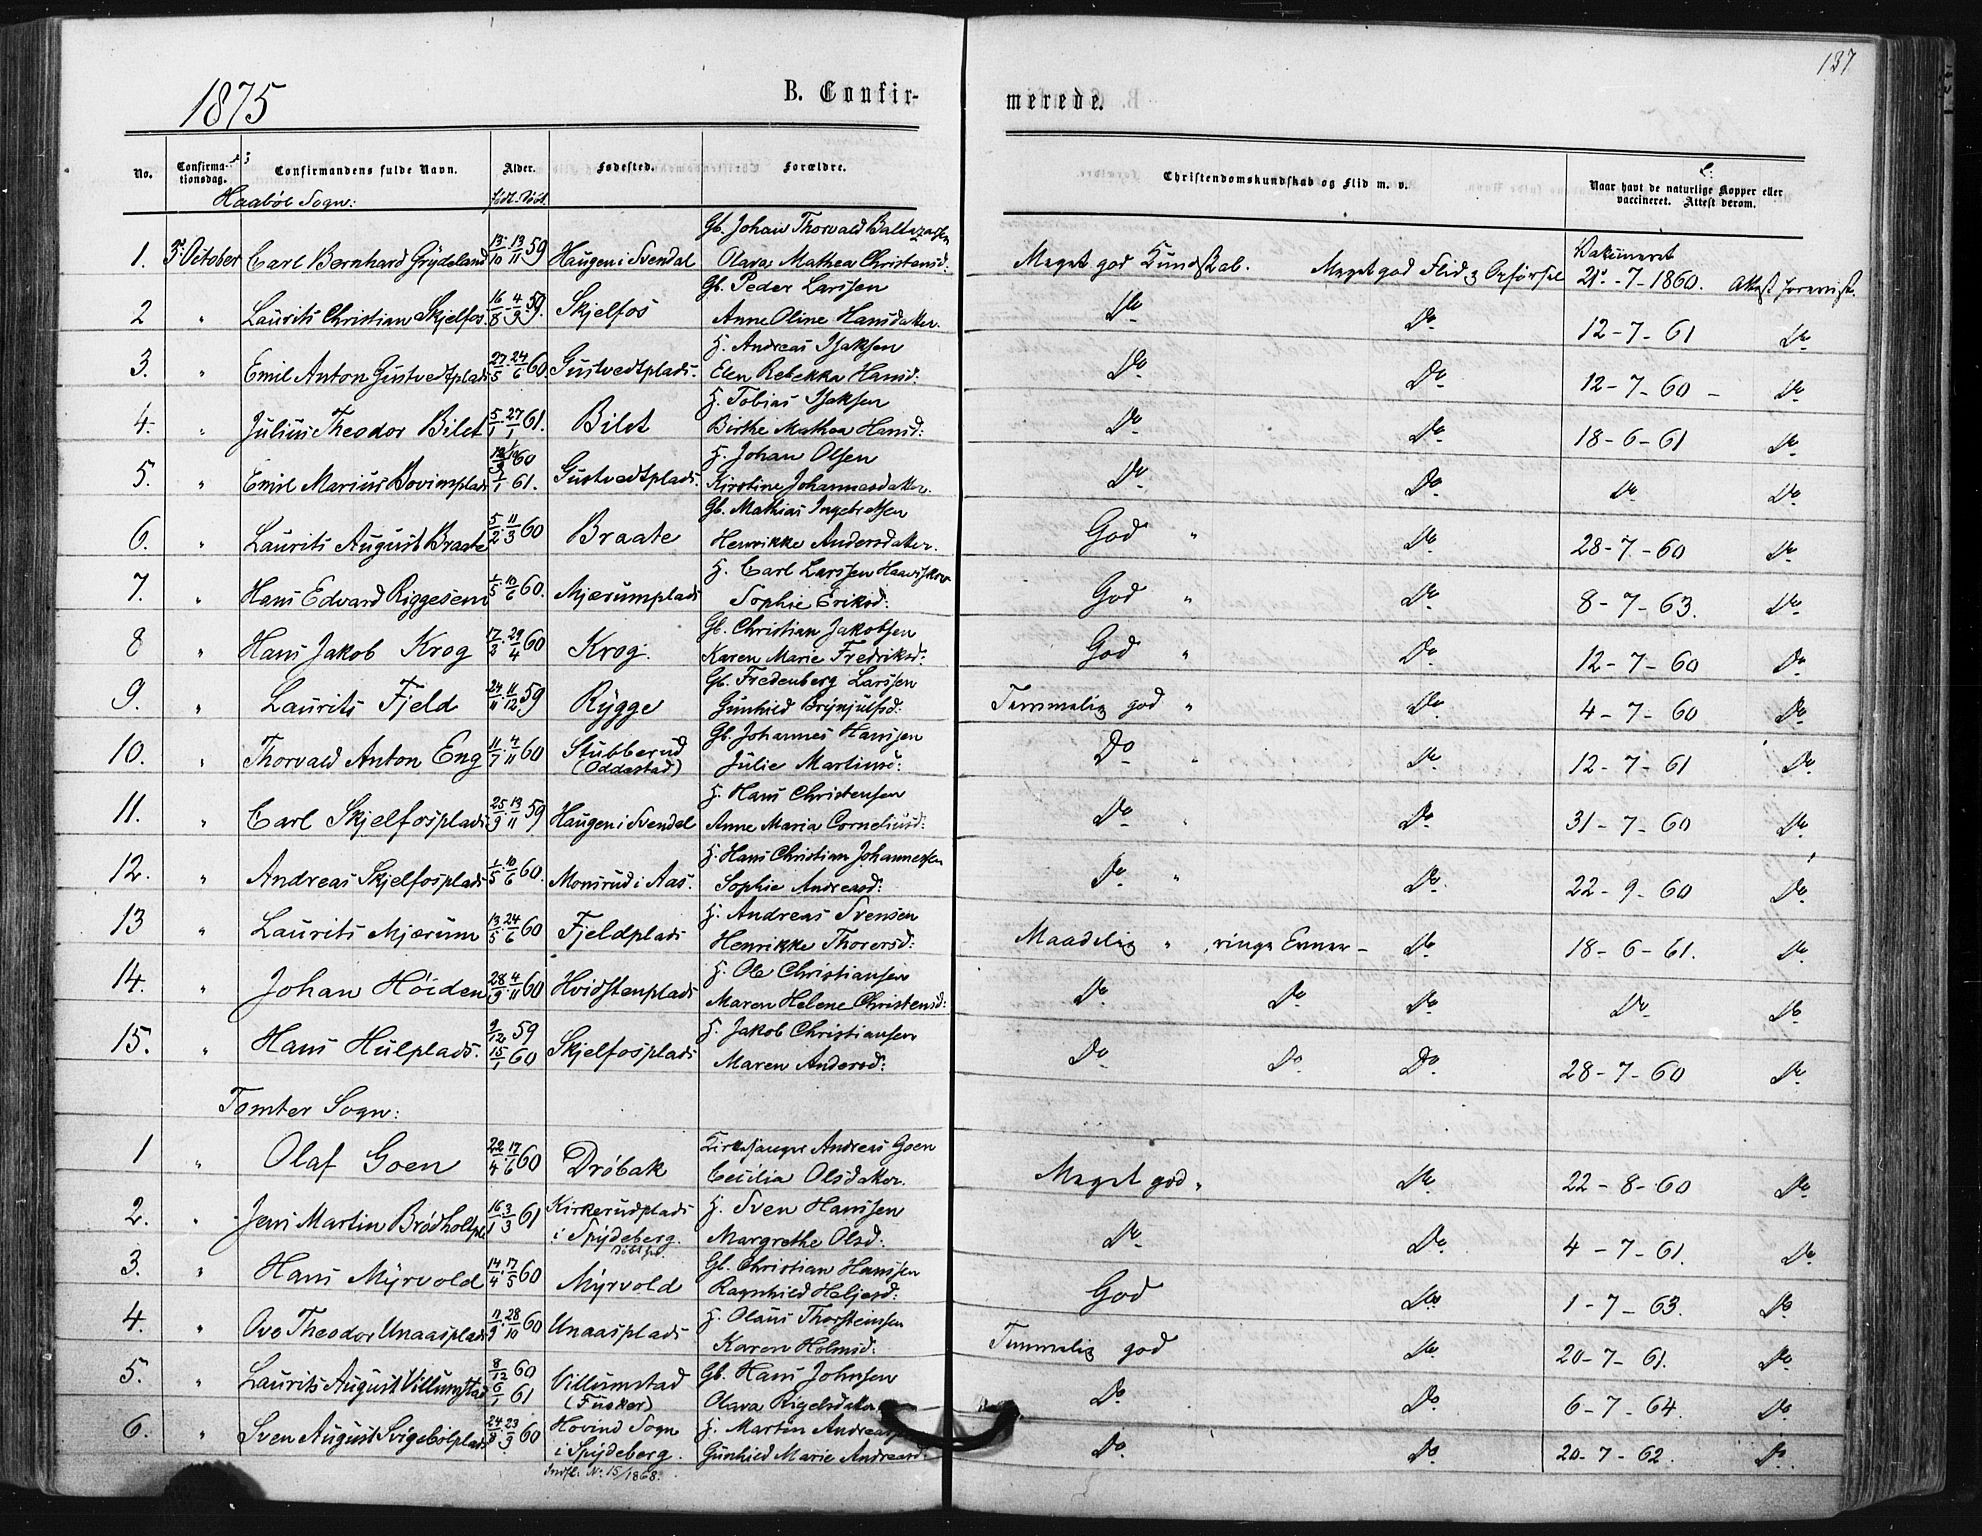 137
1875
B. Confir-
merede.
No.
Confirma-
tionsdag.
Confirmandens fulde Navn.
Alder.
Fødested.
Forældre.
Christendomskundskab og Flid m. v.
Naar havt de naturlige Kopper eller
vaccineret. Attest derom.
Haabøl Sogn:
født. Døbt.
1. 3. October Carl Bernhard Grydeland 13/10 13/11 59 Haugen i Svendal Gb. Johan Thorvald Baltazarsen
Olava Mathea Christensd: Meget god Kundskab. Meget god Flid & Opførsel Vakcineret 21. -7-1860. Attest forevist.
2 " Laurits Christian Skjelfos 16/8 4/9 59. Skjelfos Gb. Peder Larssen
Anne Oline Hansdatter. Do Do 12-7-61 Do
3. " Emil Anton Gustvedtplads 27/5 24/6 60 Gustvedtplads. H. Andreas Isaksen
Elen Rebekka Hansd: Do Do 12-7-60 - Do
4. " Julius Theodor Bilet 5/1 27/1 61. Bilet H. Tobias Isaksen
Birthe Mathea Hansd: Do Do 18-6-61 Do
5. " Emil Marius Bovimplads 60 1/1 61. Gustvedtplads. H. Johan Olsen
Kirstine Johannesdatter. Do Do Do Do
6. " Laurits August Braate 5/2 11/3 60 Braate Gb. Mathias Ingebretsen
Henrikke Andersdatter. God " Do 28-7-60 Do
7. " Hans Edvard Riggesem 1/5 10/6 60. Mjærumplads H. Carl Larssen
Sophie Eriksd: God " Do 8-7-63. Do
8 " Hans Jakob Krog 17/2 29/4 60 Krog. Gb. Christian Jakobsen
Karen Marie Fredriksd: God " Do 12-7-60 Do
9. " Laurits Fjeld 24/11 11/12 59 Rygge Gb. Fredenberg Larssen
Gunhild Brynjulfsd: Temmelig god " Do 4-7-60 Do
10. " Thorvald Anton Eng 11/7 4/11 60 Stubberud
(Oddastad) Gb. Johannes Hansen
Julie Martinsd: Do " Do 12-7-61 Do
11. " Carl Skjelfosplads 25/9 13/11 59 Haugen i Svendal H. Hans Christensen
Anne Maria Corneliusd: Do Do 31-7-60 Do
12. " Andreas Skjelfosplads 1/5 10/6 60. Monsrud i Aas. H. Hans Christian Johannessen
Sophie Andreasd: Do " Do 22-9-60 Do
13 " Laurits Mjærum 13/5 24/6 60 Fjeldplads H. Andreas Svensen
Henrikke Thorersd: Maadelig " ringe Evner - Do 18-6-61. Do
14. " Johan Høiden 28/9 4/11 60 Hvidstenplads H. Ole Christiansen
Maren Helene Christensd: Do Do Do Do Do
15. " Hans Hulplads. 9/12 59 15/1 60 Skjelfosplads H. Jakob Christiansen
Maren Andersd: Do Do Do 28-7-60 Do
Tomter Sogn:
1 " Olaf Goen 22/4 17/6 60 Drøbak Kirkesanger Andreas Goen
Cecilia Olsdatter. Meget god " Do 22-8-60 Do
2. " Jens Martin Brødholtpl 16/1 3/3 61 Kirkerudplads
i Spydeberg. H. Sven Hanssen
Margrethe Olsd: Do Do 4-7-61. Do
3. " Hans Myrvold 14/4 17/5 60 Myrvold Gb. Christian Hanssen
Ragnhild Heljesd: God Do 1-7-63. Do
4. " Ove Theodor Unaasplads 11/9 28/10 60 Unaasplads H. Olaus Thorsteinsen
Karen Holmsd: Temmelig god Do 20-7-61. Do
5. " Laurits August Villumstad 8/12 60 6/1 61 Villumstad
(Fusker) Gb. Hans Johnsen
Olava Rigelsdatter Do Do 6-7-64. Do
6. " Sven August Svigebølplads 24/8 23/9 60 Hovind Sogn
i Spydeberg. H. Martin
Gunhild Marie Andreasd: Do Do 20-7-62. Do
Indfl. No 15/1868.